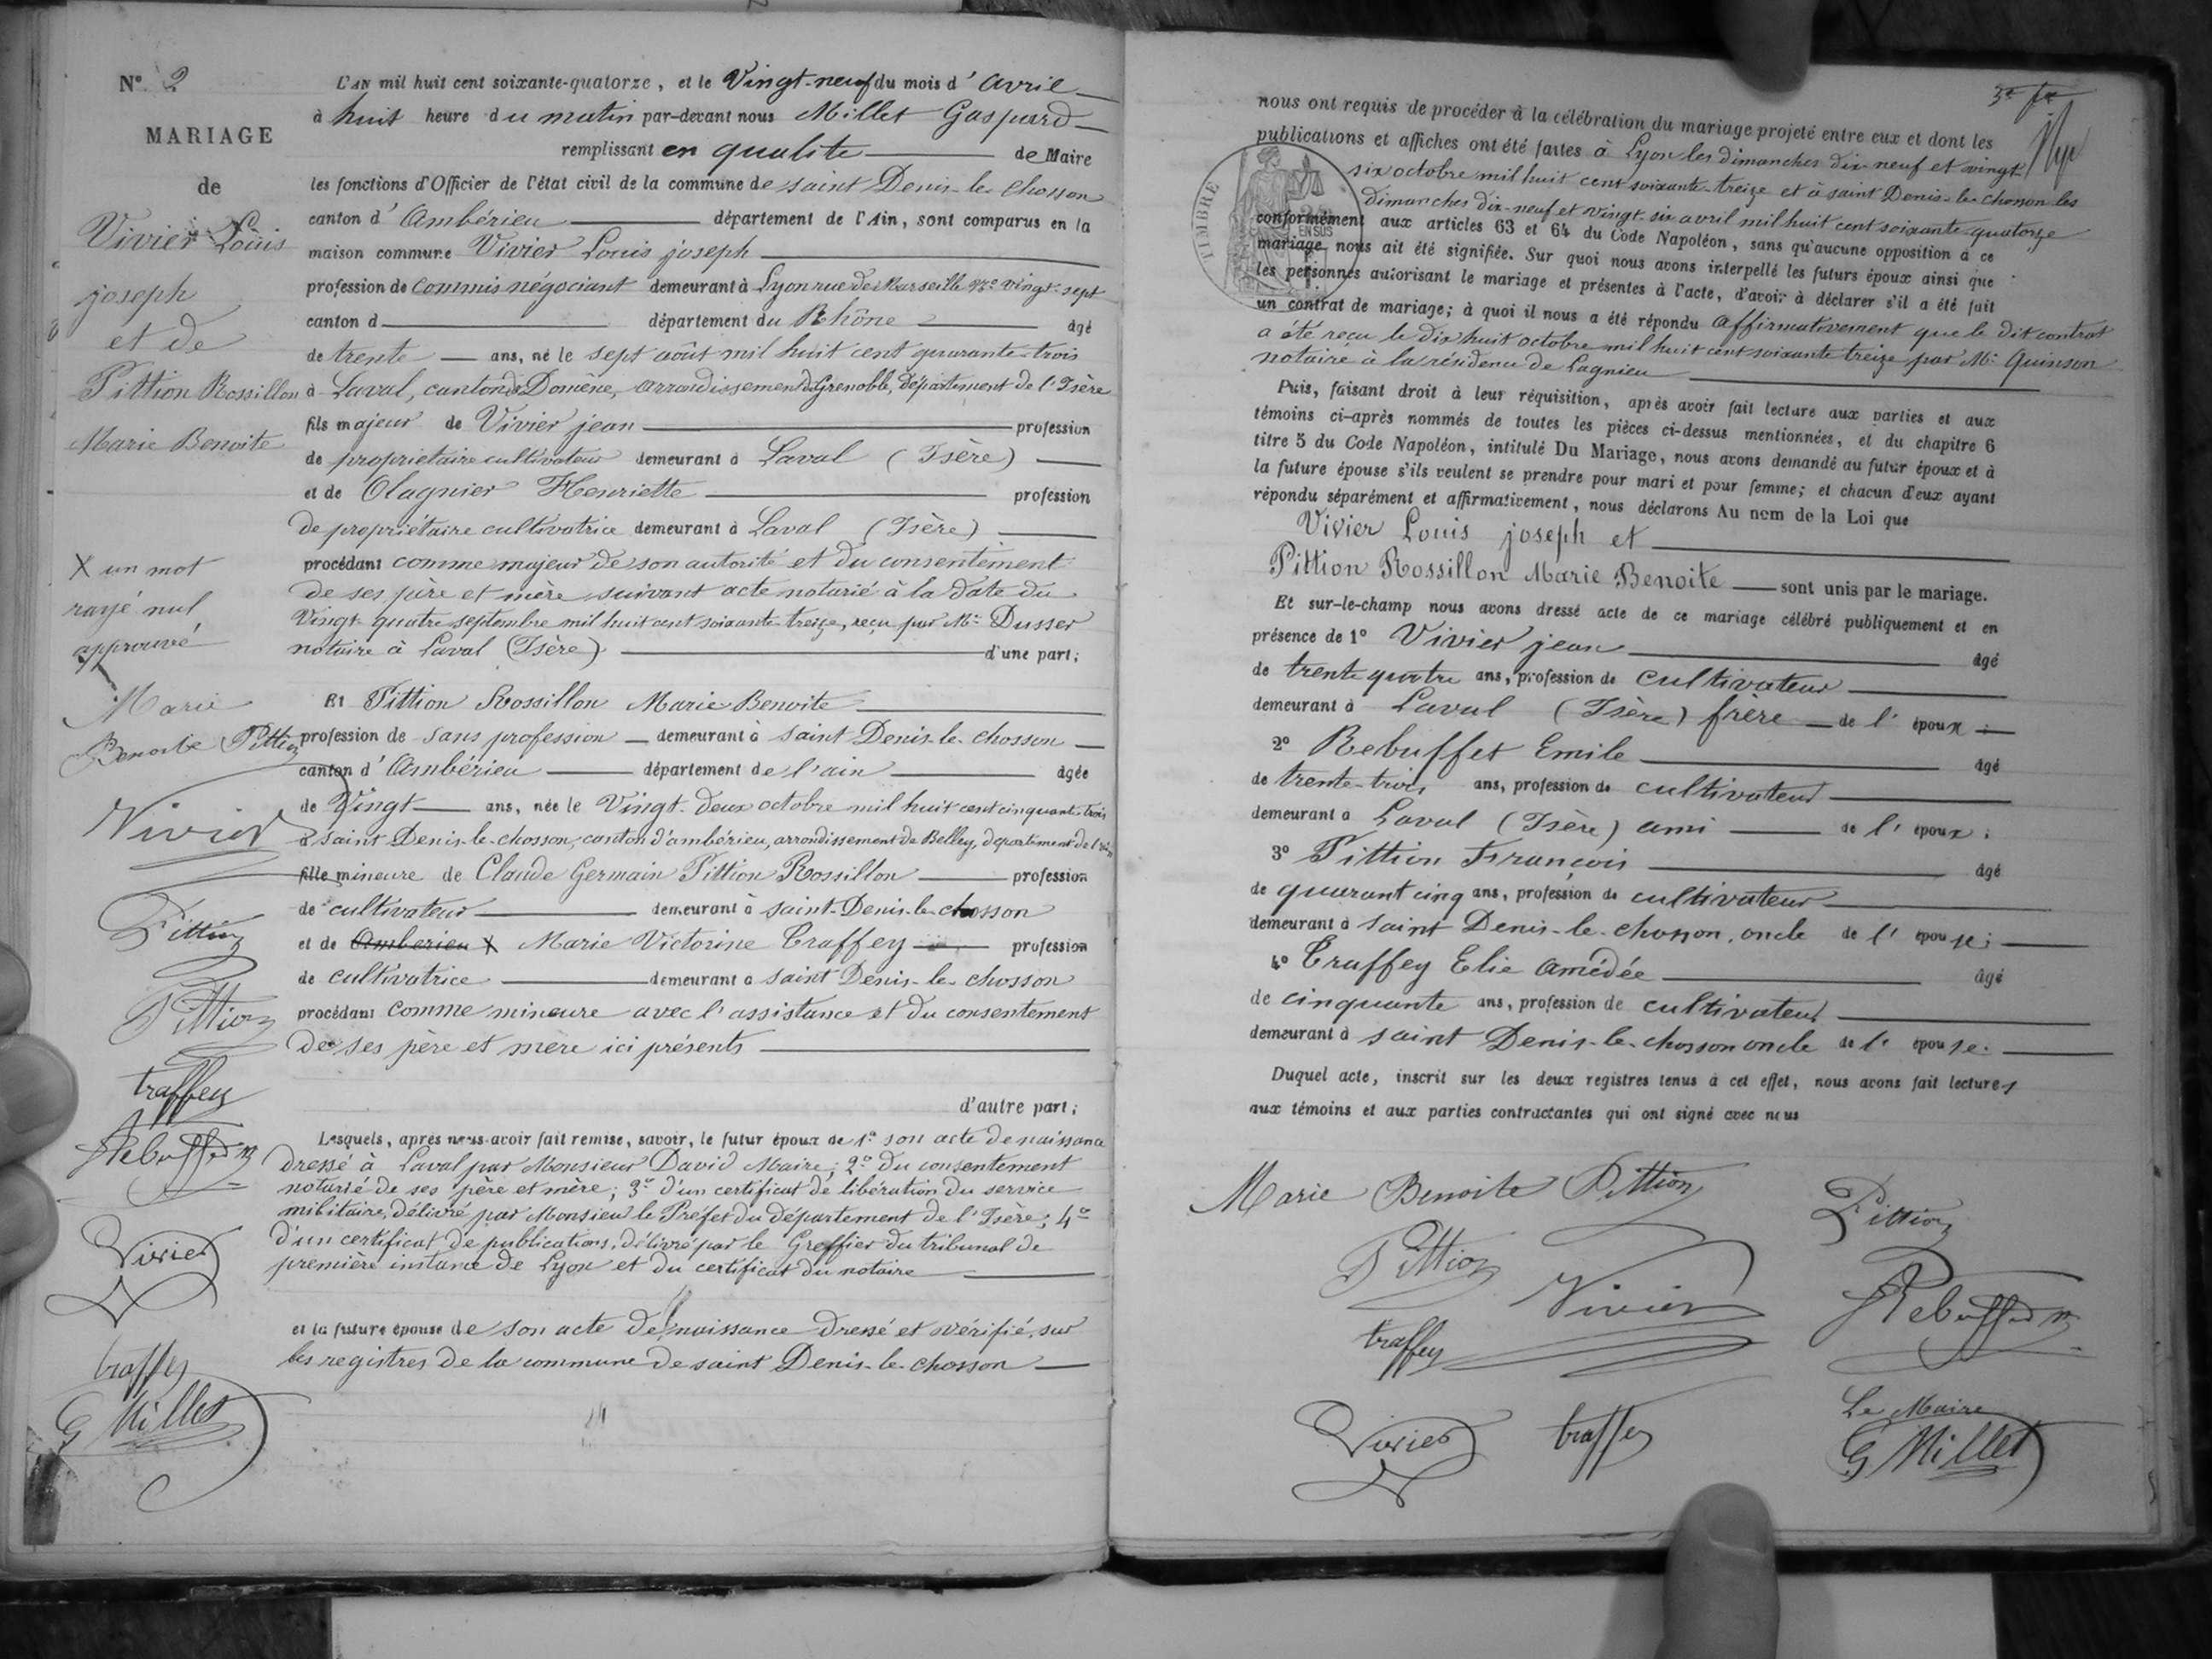 N° 2
MARIAGE
de
Vivier Louis
joseph
et de
Pittion Rossillon
Marie Benoite
X un mot
rayé nul
approuvé
Marie
Benoite Pittion
Vivier
Pittion
Pittion
traffey
Rebuffet
Vivier
traffey
G Millet
L'AN mil huit cent soixante-quatorze, et le Vingt-neuf du mois d'avril
à huit heure du matin par-devant nous Millet Gaspard
remplissant en qualite de Maire
les fonctions d'Officier de l'état civil de la commune de saint Denis-le-chosson
canton d'Ambérieu département de l'Ain, sont comparus en la
maison commune Vivier Louis joseph
profession de commis négociant demeurant à Lyon rue de Marseille N° vingt-sept
canton d département du Rhône âgé
de trente ans, né le sept août mil huit cent quarante-trois
à Laval, canton de Domène, arrondissement de Grenoble, département de l'Isère
fils majeur de Vivier jean profession
de propriétaire cultivateur demeurant à Laval (Isère)
et de Olagnier Henriette profession
de propriétaire cultivatrice demeurant à Laval (Isère)
procédant comme majeur de son autorité et du consentement
de ses père et mère suivant acte notarié à la date du
Vingt-quatre septembre mil huit cent soixante-treize, reçu par Me Dusser
notaire à Laval (Isère) d'une part;
Et Pittion Rossillon Marie Benoite
profession de sans profession demeurant à saint Denis-le-chosson
canton d'Ambérieu département de l'ain âgée
de Vingt ans, née le Vingt-deux octobre mil huit cent cinquante-trois
à saint Denis-le-chosson, canton d'ambérieu, arrondissement de Belley, département de l'ain
fille mineure de Claude Germain Pittion Rossillon profession
de cultivateur demeurant à saint-Denis-le-chosson
et de Amberieu X Marie Victorine Traffey profession
de cultivatrice demeurant à saint Denis-le-chosson
procédant comme mineure avec l'assistance et du consentement
de ses père et mère ici présents
d'autre part;
Lesquels, après nous avoir fait remise, savoir, le futur époux de 1° son acte de naissance
dressé à Laval par Monsieur David Maire; 2° du consentement
notarié de ses père et mère; 3° d'un certificat de libération du service
militaire, délivré par Monsieur le Préfet du département de l'Isère; 4°
d'un certificat de publications, délivré par le Greffier du tribunal de
première instance de Lyon et du certificat du notaire
et la future épouse de son acte de naissance dressé et vérifié sur
les registres de la commune de saint Denis-le-chosson
nous ont requis de procéder à la célébration du mariage projeté entre eux et dont les
publications et affiches ont été faites à Lyon les dimanches dix-neuf et vingt
six octobre mil huit cent soixante-treize et à saint Denis-le-chosson les
dimanches dix-neuf et vingt-six avril mil huit cent soixante-quatorze
TIMBRE
EN SUS
conformément aux articles 63 et 64 du Code Napoléon, sans qu'aucune opposition à ce
mariage nous ait été signifiée. Sur quoi nous avons interpellé les futurs époux ainsi que
les personnes autorisant le mariage et présentes à l'acte, d'avoir à déclarer s'il a été fait
un contrat de mariage; à quoi il nous a été répondu affirmativement que le dit contrat
a été reçu le dix huit octobre mil huit cent soixante treize par Me Quinson
notaire à la résidence de Lagnieu
Puis, faisant droit à leur réquisition, après avoir fait lecture aux parties et aux
témoins ci-après nommés de toutes les pièces ci-dessus mentionnées, et du chapitre 6
titre 5 du Code Napoléon, intitulé Du Mariage, nous avons demandé au futur époux et à
la future épouse s'ils veulent se prendre pour mari et pour femme; et chacun d'eux ayant
répondu séparément et affirmativement, nous déclarons Au nom de la Loi que
Vivier Louis joseph et
Pittion Rossillon Marie Benoite sont unis par le mariage.
Et sur-le-champ nous avons dressé acte de ce mariage célébré publiquement et en
présence de 1° Vivier jean âgé
de trente quatre ans, profession de cultivateur
demeurant à Laval (Isère) frère de l'époux;
2° Rebuffet Emile âgé
de trente-trois ans, profession de cultivateur
demeurant à Laval (Isère) ami de l'époux;
3° Pittion François âgé
de quarant cinq ans, profession de cultivateur
demeurant à saint Denis-le-chosson, oncle de l'épouse;
4° Traffey Elie Amédée âgé
de cinquante ans, profession de cultivateur
demeurant à saint Denis-le-chosson oncle de l'épouse.
Duquel acte, inscrit sur les deux registres tenus à cet effet, nous avons fait lectures
aux témoins et aux parties contractantes qui ont signé avec nous
Marie Benoite Pittion
Pittion
Pittion
Vivier
Rebuffet
traffey
Vivier
traffey
Le Maire
G Millet